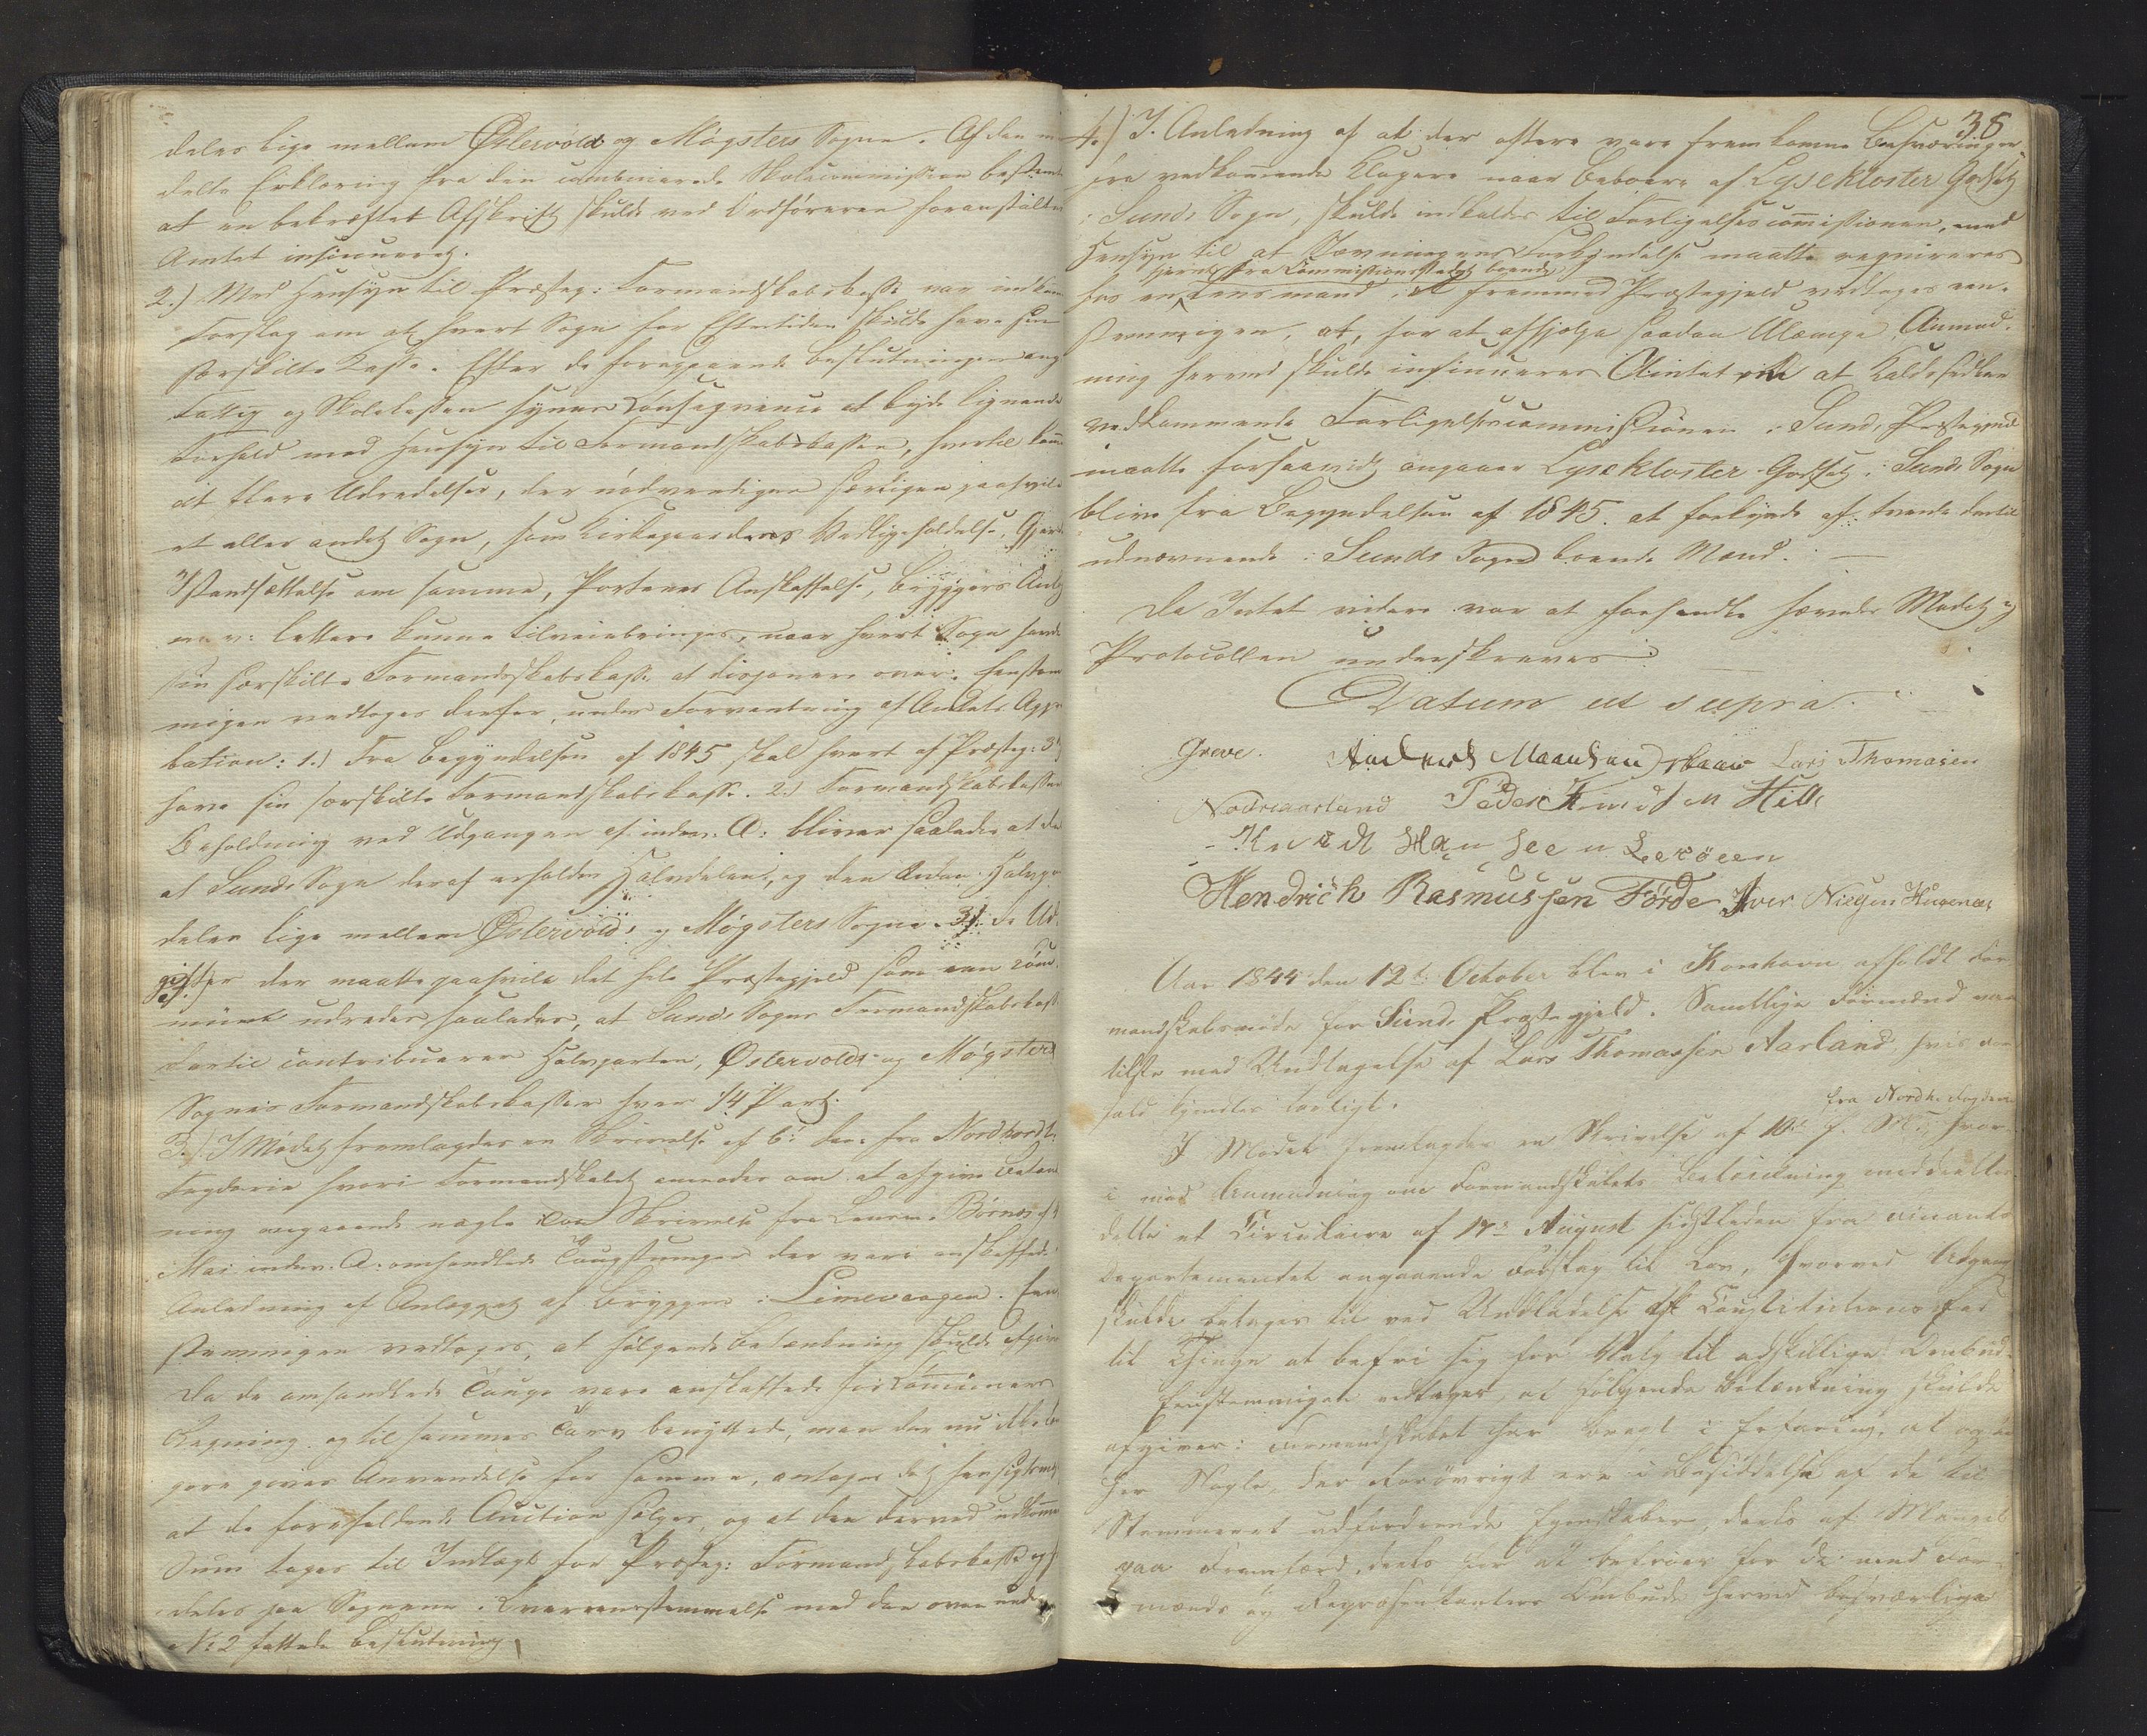 deles lige mellem Østervold og Møgsters Sogne. Af den
delte Erklæring fra den combinerede Skolecommission bestemtes
at en bekræftet Afskrift skulde ved Ordføreren foranstaltes
Amtet insinueret.
2.) Med Hensyn til Præsteg: Formandskabskasse var indkommet
Forslag om at hvert Sogn for Eftertiden skulde have sin
særskilte Kasse. Efter de foregaaende Beslutninger ang
Fattig og Skolekassen synes Consequence at byde lignende
Forhold med Hensyn til Formandskabskassen, hvortil kom
at flere Udredelser, der nødvendigen særligen paahvile
et eller andet Sogn, som Kirkegaardenes Vedligeholdelse, Gjerde
Istandsættelse om samme, Portenes Anskaffelse, Bryggers Anlæg
m. v. lettere kunne tilveiebringes, naar hvert Sogn havde
sin særskilte Formandskabskasse at disponere over. Eenstem
migen vedtoges derfor, under Forventning af Amtets Appro
bation: 1.) Fra Begyndelsen af 1845 skal hvert af Præsteg: 3
have sin særskilte Formandskabskasse. 2.) Formandskabskassens
Beholdning ved Udgangen af indev. A: bliver saaledes at dele
at Sunds Sogn deraf erholder Halvdelen, og den anden Halvpart
deles lige mellem Østervold og Møgsters Sogne. 3). De Ud-
gifter der maatte paahvile det hele Præstegjeld som een Com-
mune udredes saaledes, at Sunds Sogns Formandskabskasse
dertil contribuerer Halvparten, Østervolds og Møgsters
Sognes Formandskabskasser hver 1/4 Part.
3.) I Mødet fremlagdes en Skrivelse af 6te ds. fra Nordhordl.
Fogderie hvori Formandskabet anmodes om at afgive Betænk
ning angaaende nogle ved Skrivelse fra Lensm. Børnes af
Mai indev. A. omhandlede Tougstumper der vare anskaffede i
Anledning af Anlægget af Bryggen i Limevaagen. Een
stemmigen vedtoges, at følgende Betænkning skulde afgives
Da de omhandlede Touge vare anskaffede for Communens
Regning og til sammes Tarv benyttede, men der nu ikke
gives Anvendelse for samme, antages det hensigtsm
at de forefaldende Auction sælges, og at den derved indkomne
Sum tages til Indtægt for Præsteg: Formandskabskasse og f
deles paa Sognene i Overeensstemmelse med den oven under
N: 2 fattede Beslutning.
38
4.) I Anledning af at der oftere vare fremkomne Besværinger
fra vedkommende Klagere naar Beboere af Lysekloster Gods
i Sunds Sogn, skulde indkaldes til Forligelsescommissionen, med
Hensyn til at Stævningens Forkyndelse maatte requireres
fjernt fra Commissionsstedet boende
hos en Lensmand i et fremmed Præstegjeld vedtoges een-
stemmigen, at, for at afhjelpe saadan Ulempe, Anmod-
ning herved skulde insinueres Amtet om at Kaldsedler
vedkommende Forligelsescommissionen i Sunds Præstegjeld
maatte forsaavidt angaaer Lysekloster-Gods i Sunds Sogn
blive fra Begyndelsen af 1845. at forkynde af tvende dertil
udnævnende i Sunds Sogn boende Mænd. —
Da Intet videre var at forhandle hævedes Mødet og
Protocollen underskreves
Datum ut supra.
Greve. Anders Maansen Lars Thomasen
Nordre Aarland Peder Knudsen Hille
Knudt Hansen Lerøen
Hendrich Rasmussen Førde Iver Nilsen
Aar 1844 den 12te October blev i Korshavn afholdt For-
mandskabsmøde for Sunds Præstegjeld. Samtlige Formænd vare
tilstede med Undtagelse af Lars Thomassen Aarland, hvis For-
fald kjendtes lovligt.
fra Nordh. Fogderie
I Mødet fremlagdes en Skrivelse af 10de d. M. hvor-
i med Anmodning om Formandskabets Betænkning meddeeltes
dette et Circulaire af 17de August sidstleden fra Finants
Departementet angaaende Forslag til Lov, hvorved Adgang
skulde betages til ved Undladelse af Constitutions Eed
til Thinge at befri sig for Valg til adskillige Ombud.
Eenstemmigen vedtoges, at følgende Betænkning skulde
afgives: Formandskabet har bragt i Erfaring, at ogsaa
her Nogle, der forøvrigt ere i Besiddelse af de til
Stemmeret udfordrende Egenskaber, deels af Mangel
paa Fremfærd, deels for at befries for de med For-
mænds og Repræsentanters Ombude herved besværlige